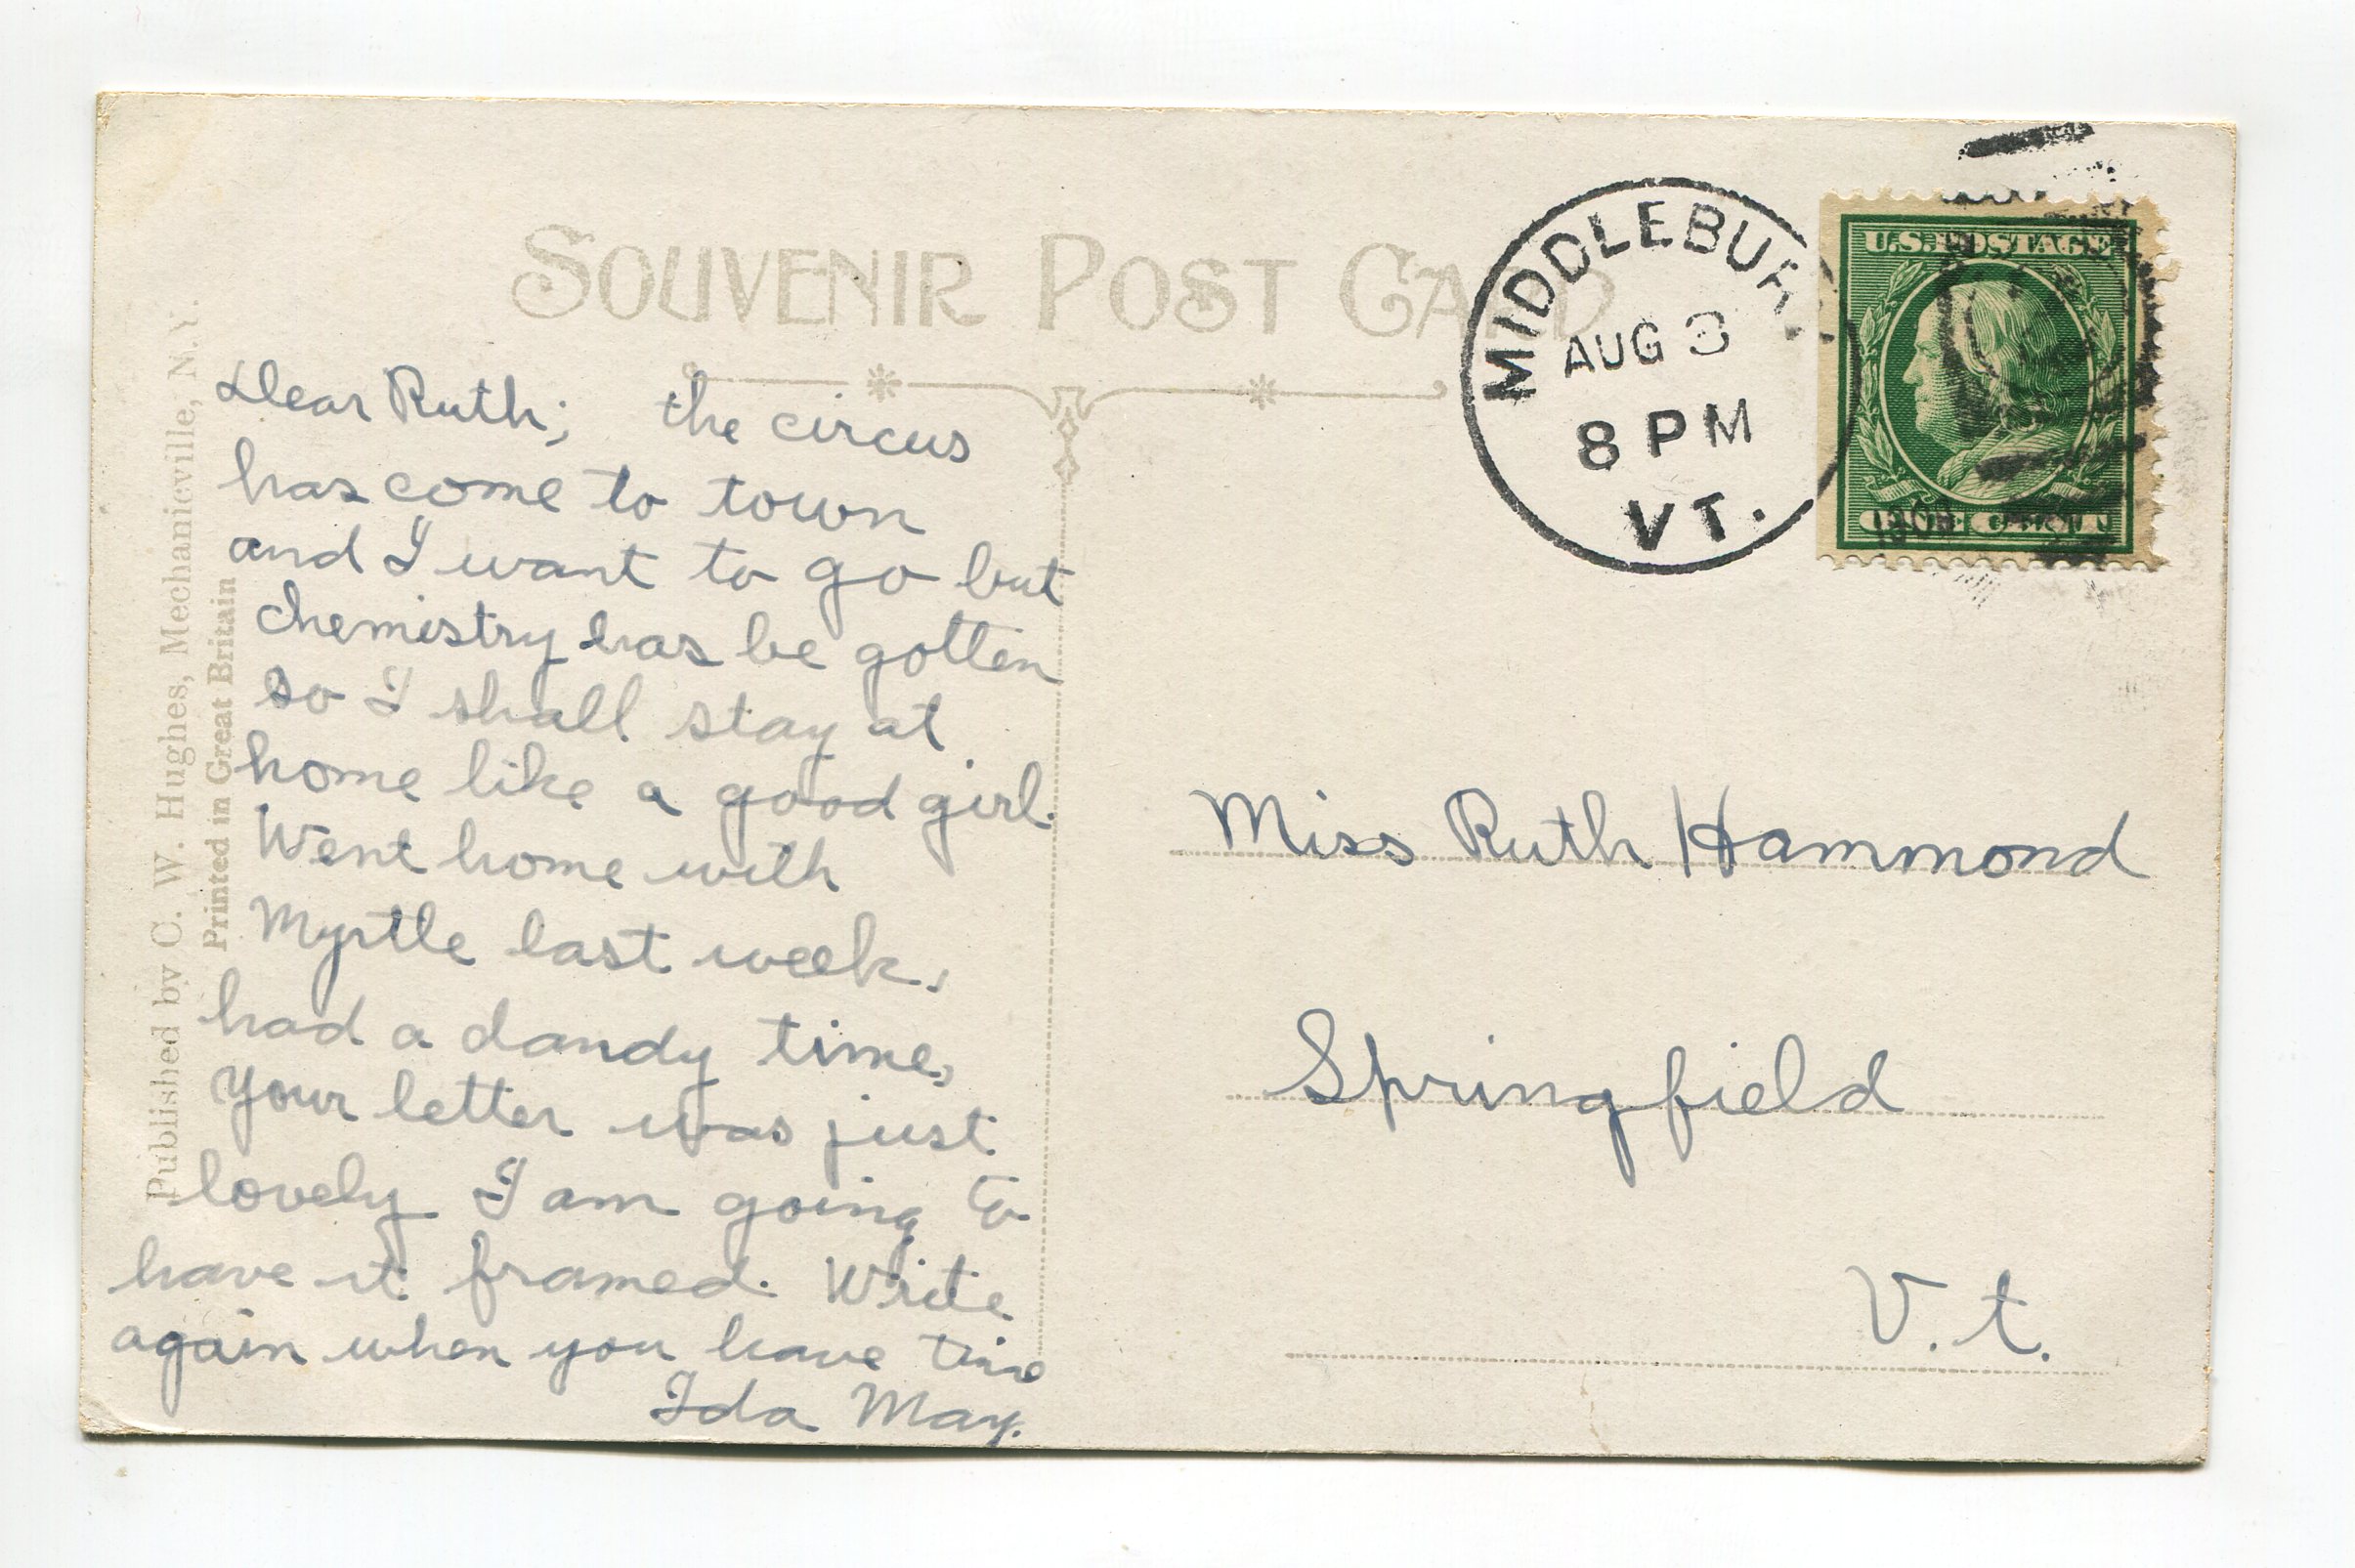 SOUVENIR POST CARD
MIDDLEBURY
AUG 3
8 PM
VT.
U.S. POSTAGE
ONE CENT
Dear Ruth; the circus
has come to town
and I want to go but
chemistry has be gotten
so I shall stay at
home like a good girl.
Went home with
Myrtle last week,
had a dandy time,
Your letter was just
lovely I am going to
have it framed. Write
again when you have time
Ida May.
Miss Ruth Hammond
Springfield
V.t.
Published by C. W. Hughes, Mechanicville, N.Y.
Printed in Great Britain